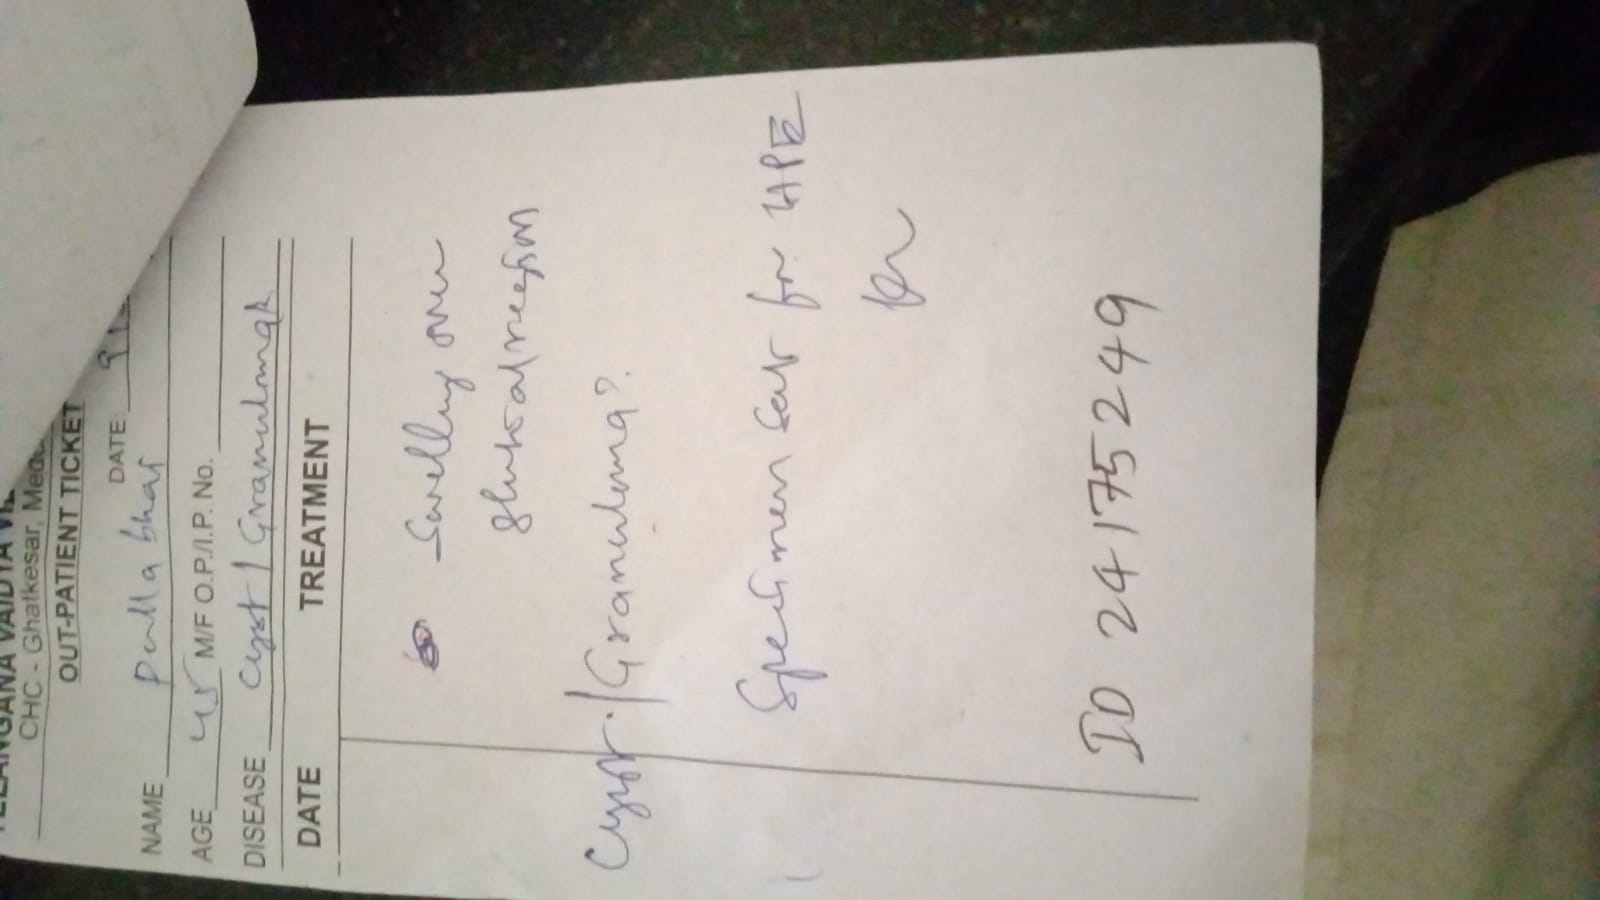 TELANGANA VAIDYA
CHC - Ghatkesar,
OUT-PATIENT TICKET
DATE:
NAME Pulla bhai
AGE 45 M/F O.P./I.P. No.
DISEASE Cyst / Granuloma
DATE TREATMENT
Swelling over
gluteal region
Cyst / Granuloma?
Specimen sent for HPE
ID 24175249